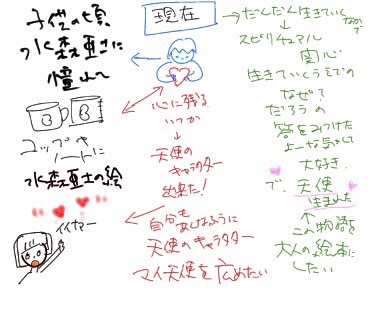 子供の頃
水森亜土に
憧れて
B
B
コップや
ノートに
水森亜土の絵
イイナー
現在
心に残る
いつか
↓
天使の
キャラクター
出来た!
自分も
あんなふうに
天使のキャラクター
マイ天使を広めたい
→だんだん生きていく
なかで
↓
スピリチュアル
関心
生きていくうえでの
なぜ?
だろうの
答をみつけた
ような気がして
大好き.
で、天使
生まれた
↑
この物語を
大人の絵本に
したい